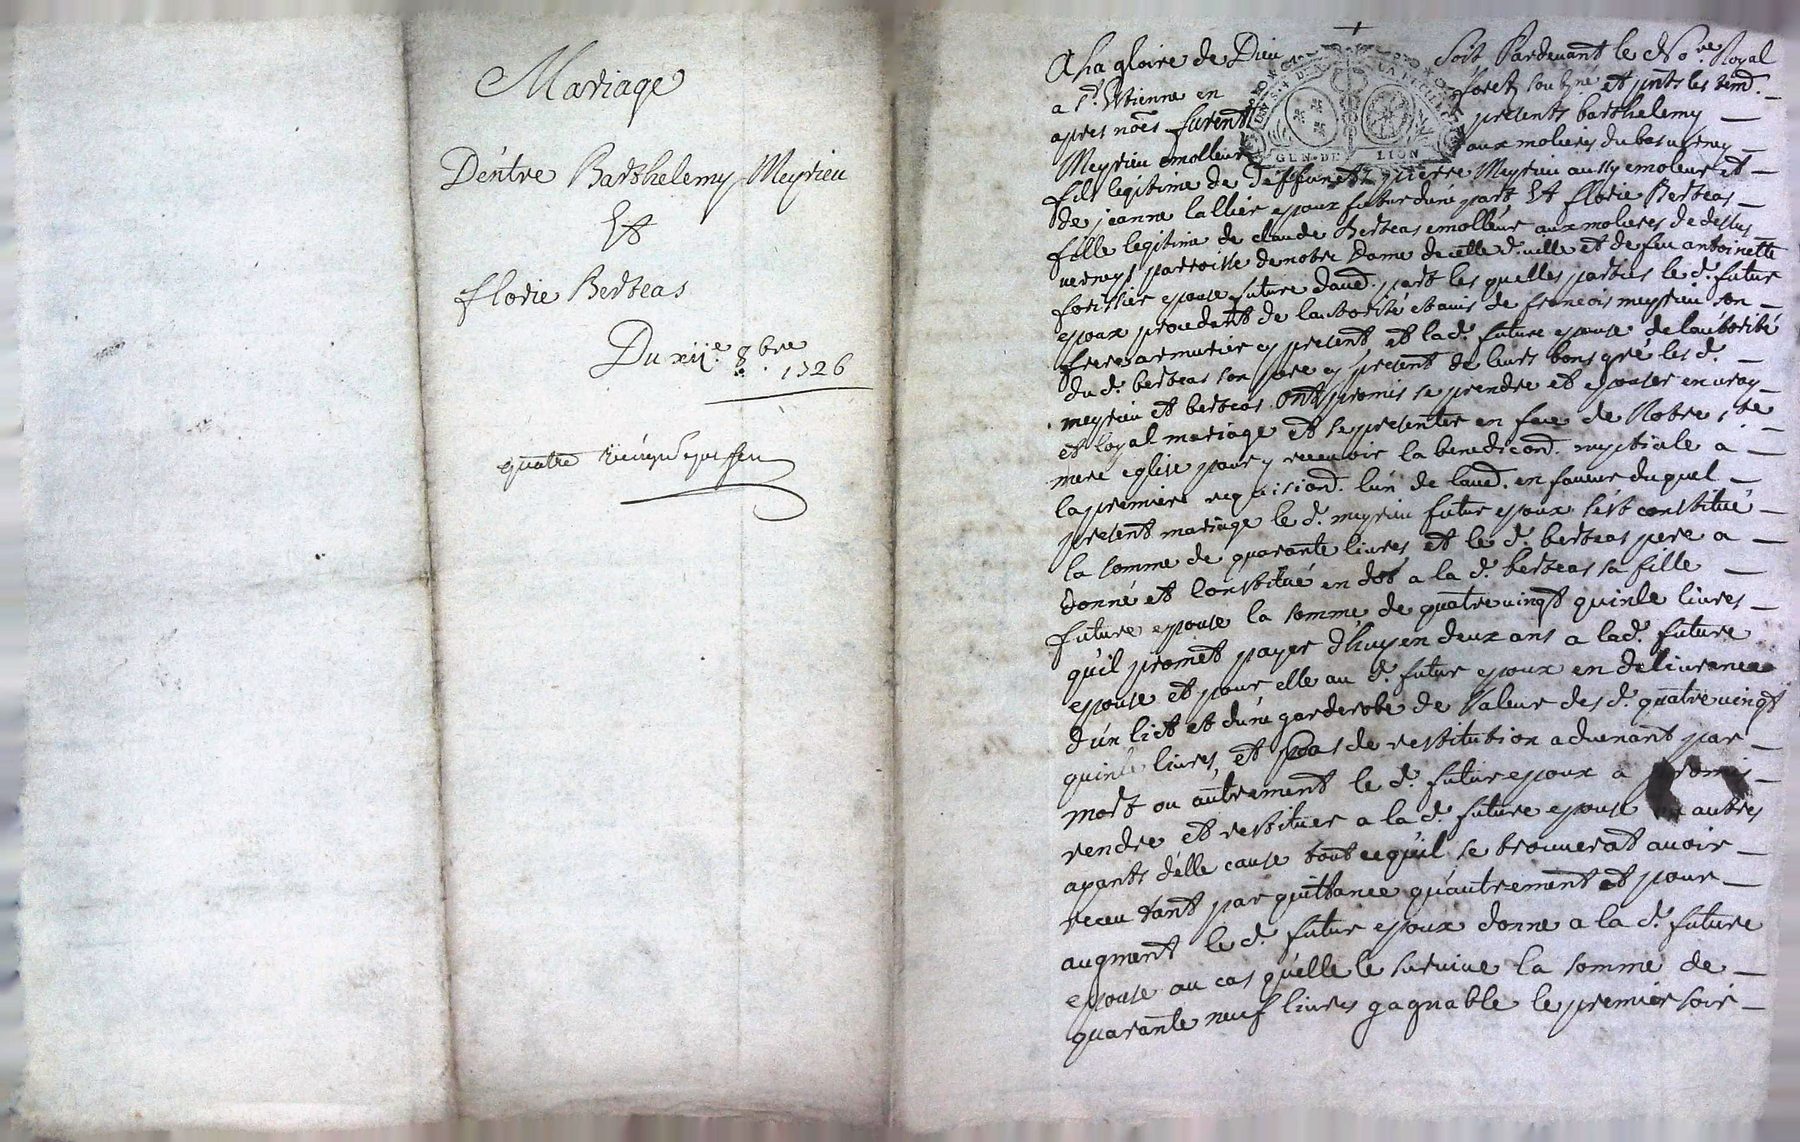 Mariage
D'éntre Barthelemy Meyrieu
Et
florie Berteas
Du xije 8.bre
1726
quatre
A La gloire de Dieu Soit Pardevant le No.re Royal
a s.t Etienne en forest soub.né et pnts les tem.
apres nōes furent presents barthelemy
Meyrieu emolleur aux molieres du bas verney
GEN. DE LION
fils legitime de deffunct pierre Meyrieu aussy emoleur et
de jeanne lallier epoux futur d'une part Et florie Berteas
fille legitime de claude Berteas emolleur aux molieres de dessus
verney parroisse de notre Dame de cette d. ville et de feu antoinette
forissier epouse future d'aud. part les quelles parties le d. futur
epoux procedant de lauthorité et avis de francois meyrieu son
frere armurier cy present et la d. future epouse de lauthorité
du d. berteas son pere cy present de leurs bons gré les d.
meyrieu et berteas ont promis se prendre et epouser en vray
et loyal mariage et se presenter en face de Notre s.te
mere eglise pour y recevoir la benediction. nuptiale a
la premiere requisiond. lun de laud. en faveur duquel
present mariage le d. meyrieu futur epoux s'est constitué
la somme de quarante livres et le d. berteas pere a
donné et constitué en dot a la d. berteas sa fille
future epouse la somme de quatre vingt quinze livres
qu'il promet payer d'huy en deux ans a la d. future
epouse et pour elle au d. futur epoux en delivrance
d'un lict et d'une garderobe de valeur des d. quatre vingt
quinze livres, et pas de restitution advenant par
mort ou autrement le d. futur epoux a promis
rendre et restituer a la d. future epouse autres
ayants d'elle cause tout ce qu'il se trouverat avoir
receu tant par quittance qu'autrement et pour
augment le d. futur epoux donne a la d. future
epouse au cas qu'elle le survive la somme de
quarante neuf livres gagnable le premier soir